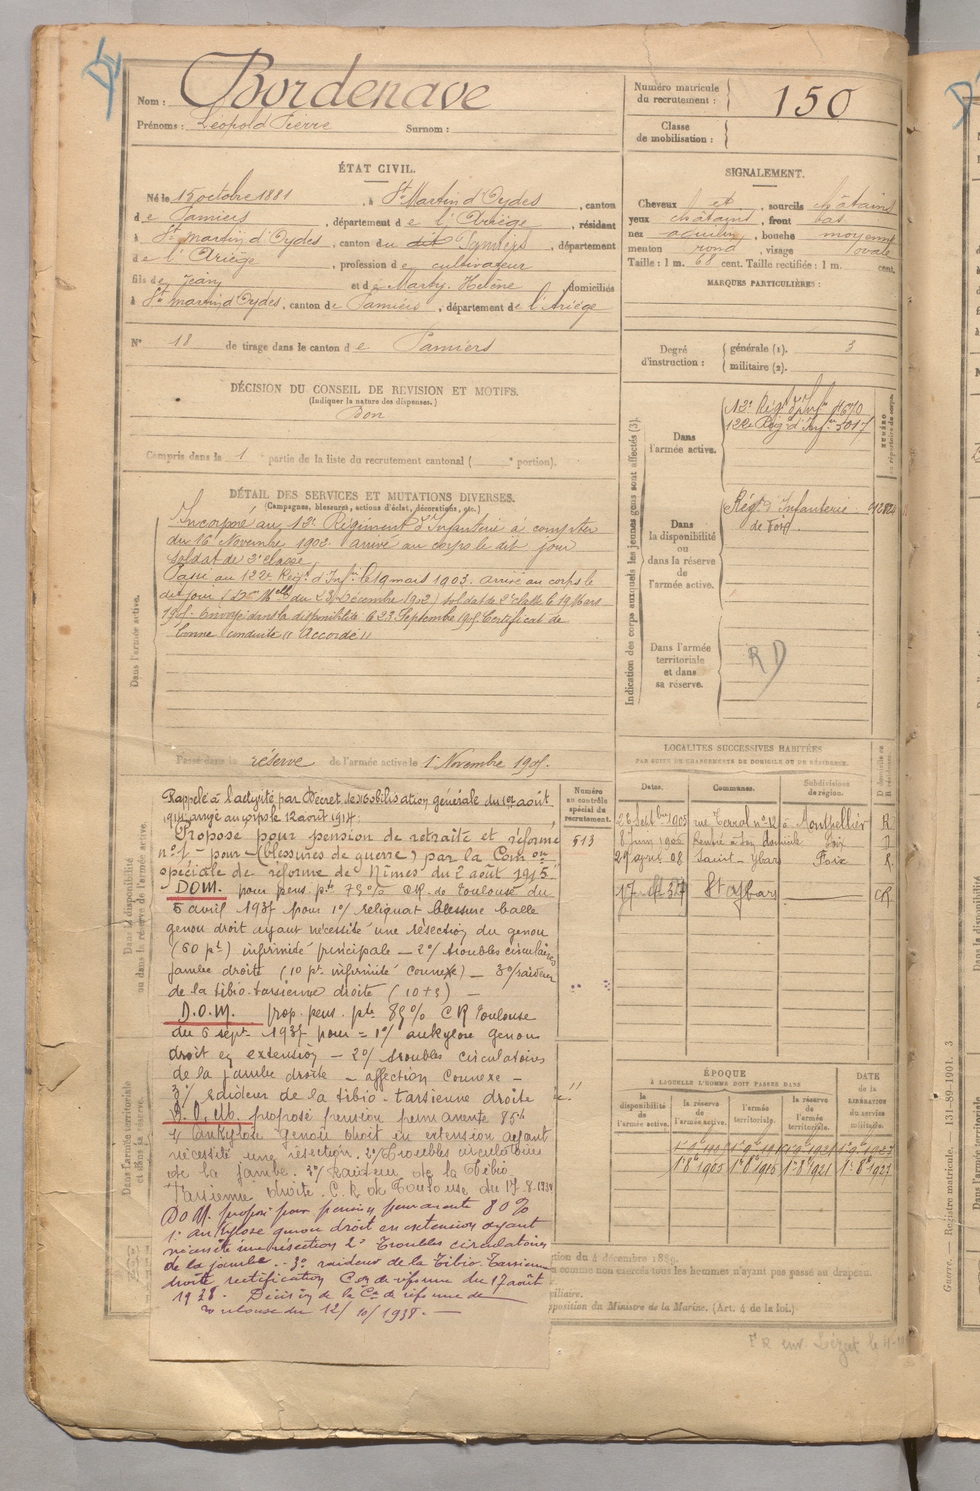 Nom : Bordenave
Prénoms : Léopold Pierre Surnom :
Numéro matricule du recrutement : 150
Classe de mobilisation :
ÉTAT CIVIL.
Né le 15 octobre 1881, à St Martin d'Oydes, canton
de Pamiers, département de l'Ariège, résidant
à St martin d'Oydes, canton du dit Pamiers, département
de l'Ariège, profession de cultivateur
fils de Jean et de Marty Hélène domiciliés
à St martin d'Oydes, canton de Pamiers, département de l'Ariège
N° 18 de tirage dans le canton de Pamiers
SIGNALEMENT.
Cheveux et, sourcils châtains
yeux châtains, front bas
nez aquilin, bouche moyenne
menton rond, visage ovale
Taille : 1 m. 68 cent. Taille rectifiée : 1 m. cent.
MARQUES PARTICULIÈRES :
Degré d'instruction : générale (1). 3
militaire (2).
DÉCISION DU CONSEIL DE REVISION ET MOTIFS.
(Indiquer la nature des dispenses.)
Bon
Compris dans la 1e partie de la liste du recrutement cantonal ( e portion).
DÉTAIL DES SERVICES ET MUTATIONS DIVERSES.
(Campagnes, blessures, actions d'éclat, décorations, etc.)
Dans l'armée active.
Incorporé au 13e Régiment d'Infanterie à compter
du 16 Novembre 1902. arrivé au corps le dit jour
soldat de 2e classe.
Passé au 122e Régt d'Infie le 19 mars 1903. arrivé au corps le
dit jour (Don Mlle du 23 Décembre 1902) soldat de 2e classe le 19 Mars
1903. envoyé dans la disponibilité le 23 Septembre 1905. Certificat de
bonne conduite "Accordé"
Passé dans la réserve de l'armée active le 1 Novembre 1905.
Indication des corps auxquels les jeunes gens sont affectés (3).
Dans l'armée active.
122e Rég. d'Infie 5017
Dans la disponibilité ou dans la réserve de l'armée active.
Régt d'Infanterie
de Foix
Dans l'armée territoriale et dans sa réserve.
R D
LOCALITÉS SUCCESSIVES HABITÉES
PAR SUITE DE CHANGEMENTS DE DOMICILE OU DE RÉSIDENCE.
Dates. Communes. Subdivisions de région.
23 Septbre 1905 rue Terral n° 12 à Montpellier R
8 juin 1906 Rentré à son domicile Foix
29 avril 08 Saint-Ybars Foix R
St Ybars CR
Numéro au contrôle spécial du recrutement.
513
Dans la disponibilité ou dans la réserve de l'armée active.
Rappelé à l'activité par Décret de Mobilisation générale du 1er août
1914 arrivé au corps le 12 août 1914.
Proposé pour pension de retraite et réforme
n° 1 - pour - (blessures de guerre) par la Comon
spéciale de réforme de Nîmes du 2 août 1915
D.O.M. pour pens. pte 75% CR. de Toulouse du
6 avril 1937 pour 1°/ reliquat blessure balle
genou droit ayant nécessité une résection du genou
(60 pt) infirmité principale — 2°/ troubles circulaires
jambe droite (10 pt infirmité connexe) — 3°/ raideur
de la tibio-tarsienne droite (10+5) —
D.O.M. prop. pens. pte 85% CR Toulouse
du 6 sept. 1937 pour = 1°/ ankylose genou
droit en extension — 2°/ troubles circulatoires
de la jambe droite — affection connexe —
3°/ raideur de la tibio-tarsienne droite
D.O.M. proposé pension permanente 85%
1/ ankylose genou droit en extension ayant
nécessité une résection. 2°/ troubles circulatoires
de la jambe. 3°/ Raideur de la tibio
Tarsienne droite. C.R. de Toulouse du 17.8.1938
DOM. proposé pour pension permanente 80%
1° ankylose genou droit en extension ayant
nécessité une résection 2° Troubles circulatoires
de la jambe. - 3° raideur de la Tibio-Tarsienne
droite rectification Con de réforme du 17 août
1938. Décision de la Con de réforme de
Toulouse du 12/10/1938. —
Dans l'armée territoriale et dans sa réserve.
ÉPOQUE
À LAQUELLE L'HOMME DOIT PASSER DANS
la disponibilité de l'armée active. la réserve de l'armée active. l'armée territoriale. la réserve de l'armée territoriale.
DATE de la LIBÉRATION du service militaire.
1er 8e 1905 1er 8e 1915 1er 8e 1921 1er 8e 1927
du 4 décembre 1889.
comme non exercés tous les hommes n'ayant pas passé au drapeau.
disposition du Ministre de la Marine. (Art. 4 de la loi.)
Greuse. — Registre matricule. — 131-89-1901. 3